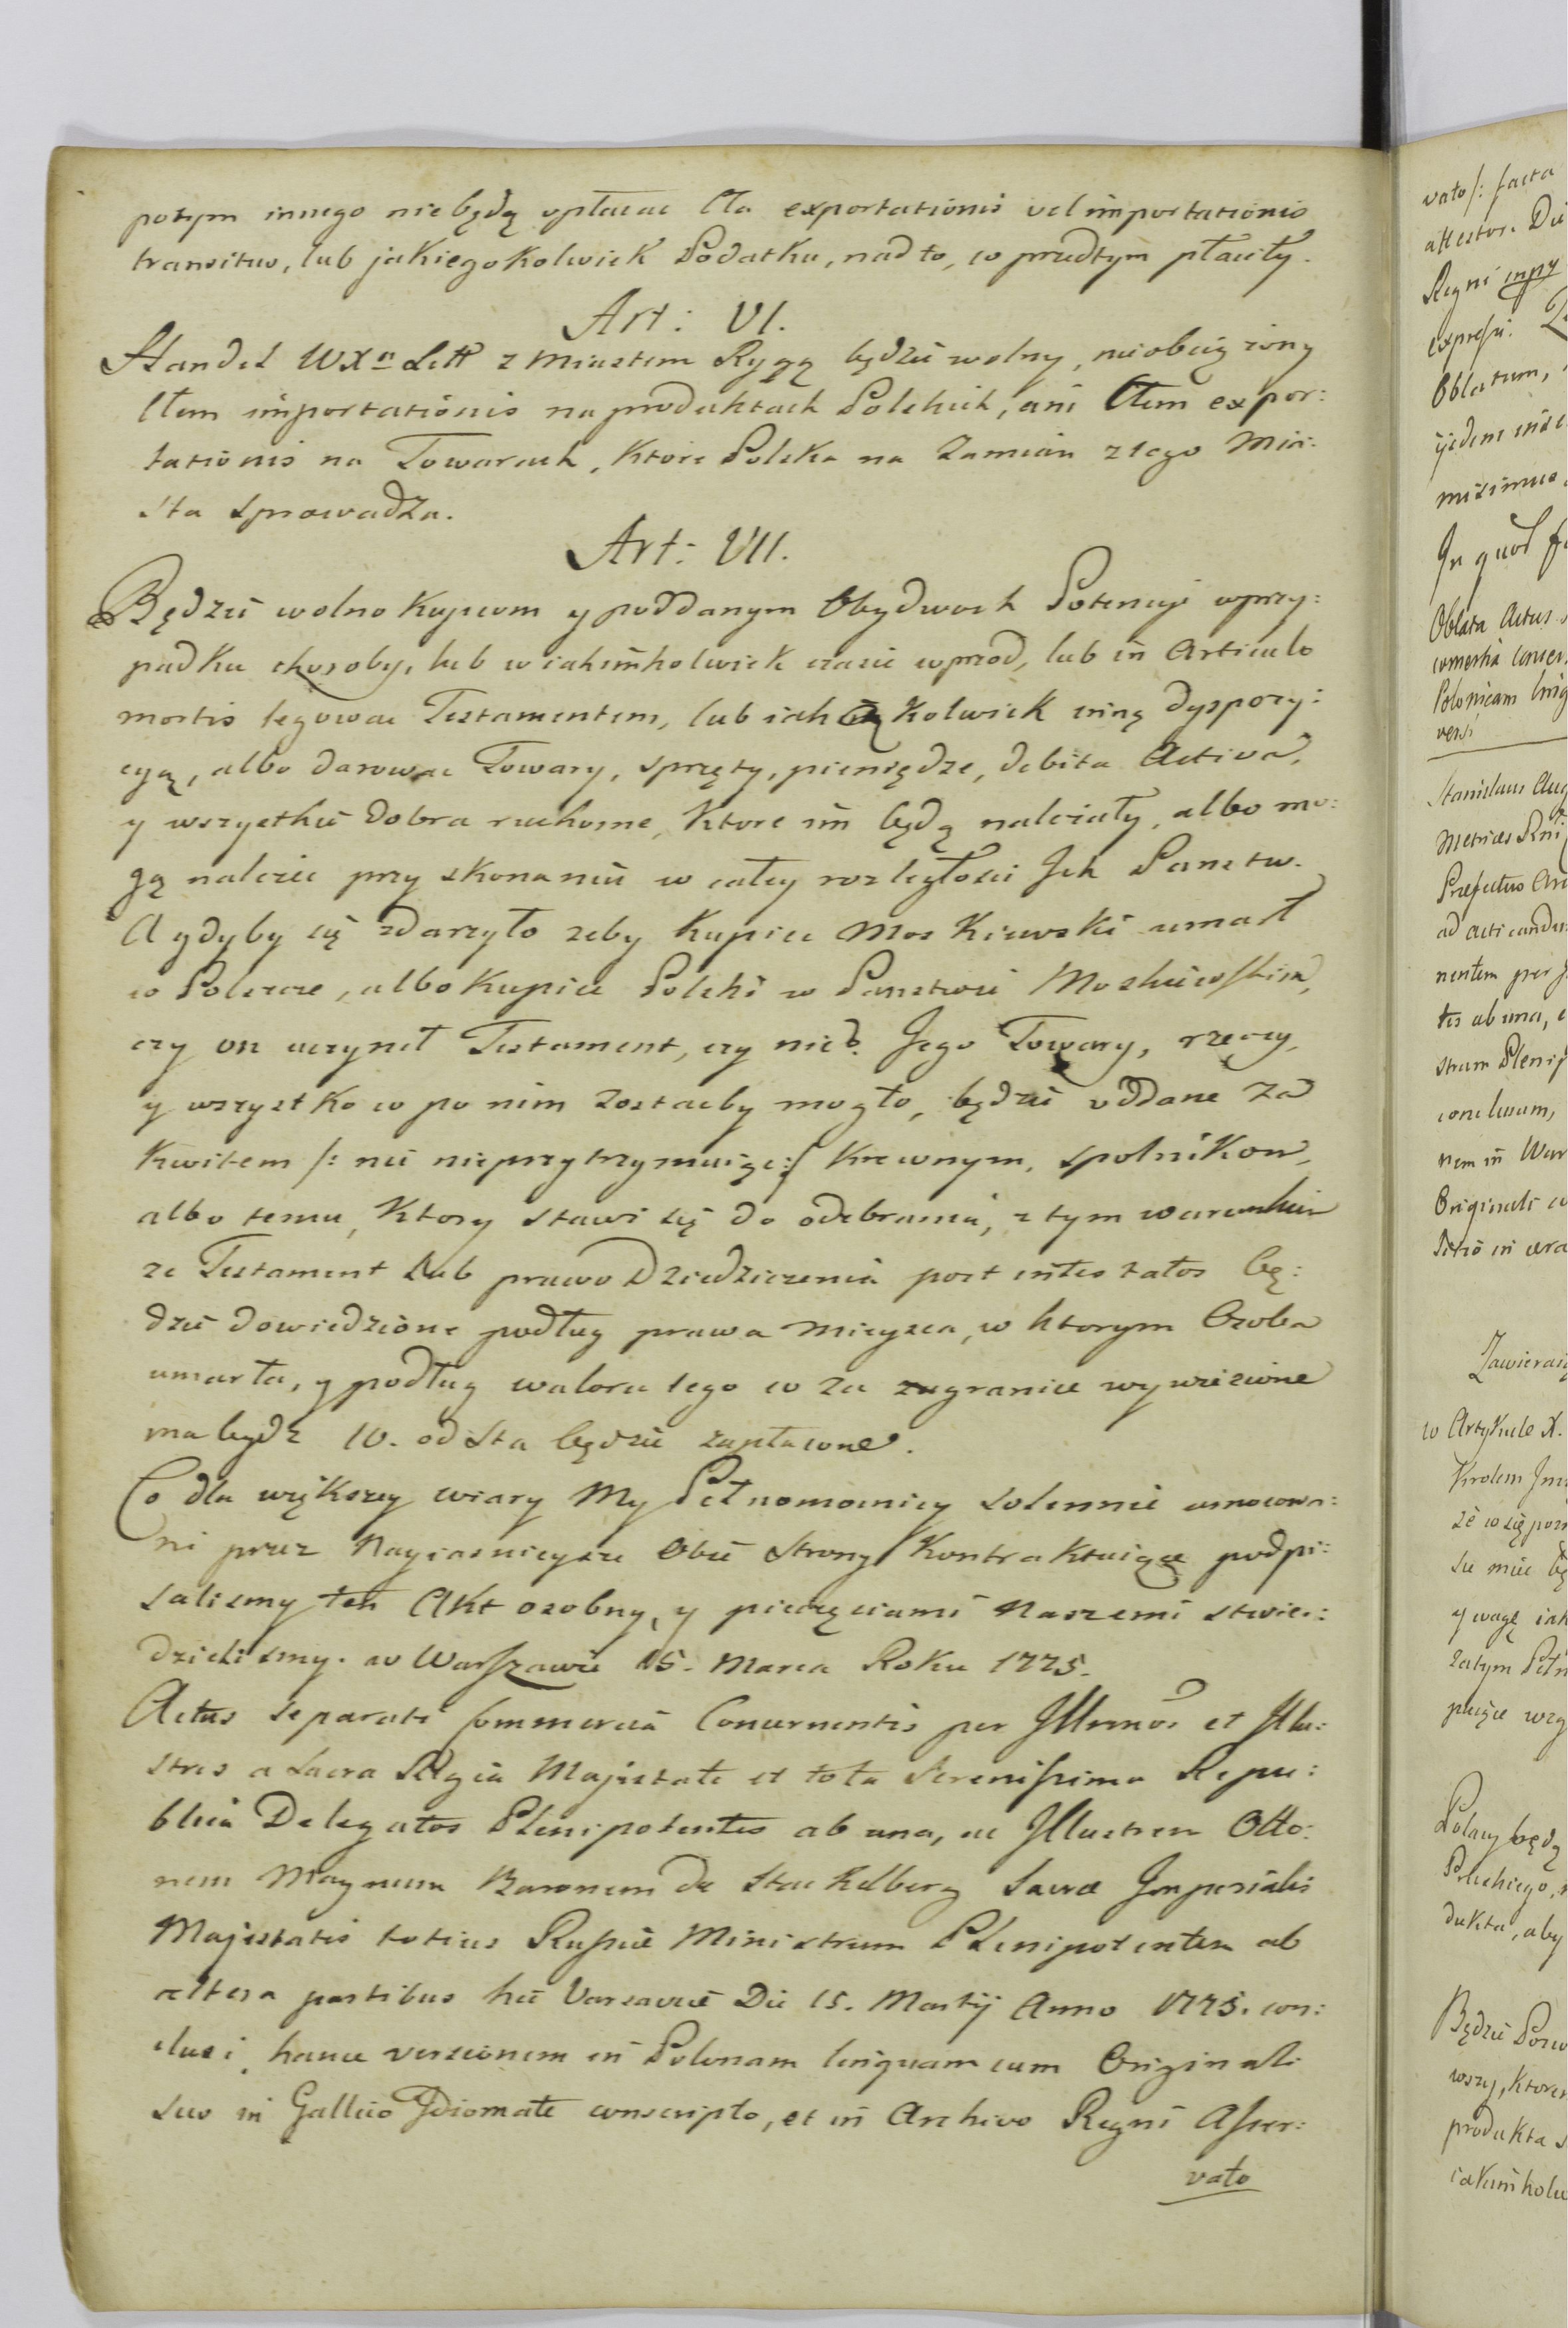 potym innego niebędą opłacac Cła exportationis vel importationis
transitus, lub jakiegokolwiek Podatku, nad to, co przedtym płaciły.
Art: VI.
Handel WXa Littt z Miastem Rygą będzie wolny, nieobciążony
Cłem importationis na produktach Polskich, ani Cłem expor:
tationis na Towarach, Ktore Polska na Zamian z tego Mia:
sta sprowadza.
Art: VII.
Będzie wolno Kupcom y poddanym Obydwoch Potencyi wprzy:
padku choroby, lub w iakimkolwiek czasie wprzod, lub in Articulo
mortis legowac Testamentem, lub iakąkolwiek inną dyspozy:
cyą, albo darowac Towary, sprzęty, pieniędze, debita Activa,
y wszystkie dobra ruchome, Ktore im będą należały, albo mo:
gą należec przy skonaniu w całey rozległosci Jch Panstw.
A gdyby się zdarzyło zeby Kupiec Moskiewski umarł
w Polszcze, albo Kupiec Polski w Panstwie Moskiewskim,
czy on uczynił Testament, czy nie? Jego Towary, rzeczy,
y wszystko co po nim zostacby mogło, będzie oddane za
Kwitem /: nic nieprzytrzymuiąc :/ Krewnym, spolnikow,
albo temu, Ktory stawi się do odebrania, z tym warunkiem
ze Testament Lub prawo Dziedziczenia post intestatos bę:
dzie dowiedzione podług prawa mieysca, w ktorym Osoba
umarła, y podług waloru tego co za zagranice wywiezione
ma bydz 10. od sta będzie zapłacone.
Co dla większey wiary My Pełnomocnicy solennie umocowa:
ni przez Nayiasnieysze Obie Strony Kontraktuiące podpi:
salismy ten Akt osobny, y pieczęciami Naszemi stwier:
dzielismy. w Warszawie 15. Marca Roku 1775.
Actus separati Commercia Concernentis per Jllrmos et Jllu:
stres a Sacra Regia Majestate et tota Serenissima Repu:
blica Delegatos Plenipotentes ab una, ac Jllustrem Otto:
nem Magnum Baronem de Stackelberg Sacræ Jmperialis
Majestatis totius Russiæ Ministrum Plenipotentem ab
altera partibus hic Varsaviæ Die 15. Martij Anno 1775. con:
clusi, hance versionem in Polonam linguam cum Originali
suo in Gallico Jdiomate conscripto, et in Archivo Regni Asser:
vato
vato /: facta
attestor. Die
Regni
express:
Oblatum,
misimus
Jn quor
Oblata Actus
Polonicam
versi
Stanislaus Aug
Metrices
ad acticandum
nentem per
tes ab una,
strum
conclusum,
nem in War
Originali
Zawieraią
w Artykule X.
Krolem
y wagę iak
zatym
Polacy będą
dukta, aby
Będzie
wszy, Ktore
produkta